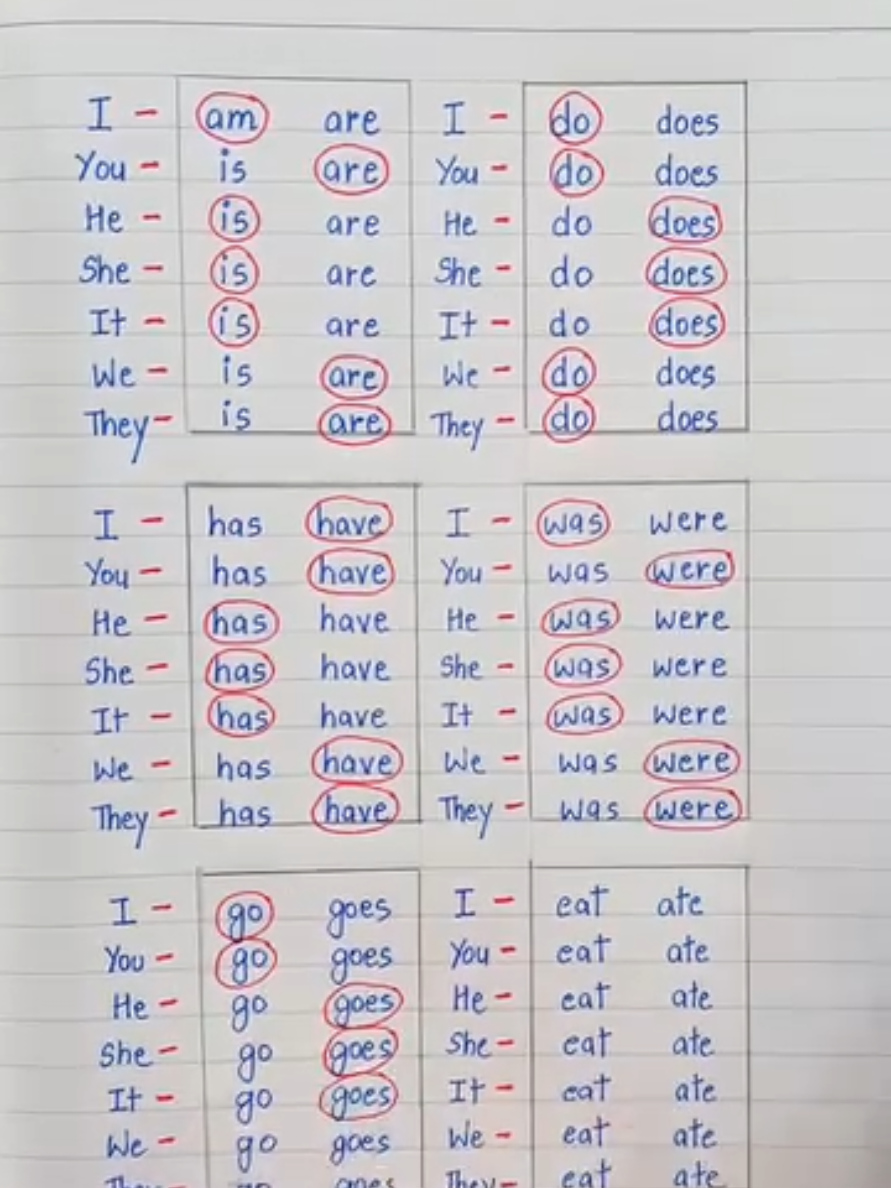 I - am are
You - is are
He - is are
She - is are
It - is are
We - is are
They - is are
I - do does
You - do does
He - do does
She - do does
It - do does
We - do does
They - do does
I - has have
You - has have
He - has have
She - has have
It - has have
We - has have
They - has have
I - was were
You - was were
He - was were
She - was were
It - was were
We - was were
They - was were
I - go goes
You - go goes
He - go goes
She - go goes
It - go goes
We - go goes
They go goes
I - eat ate
You - eat ate
He - eat ate
She - eat ate
It - eat ate
We - eat ate
They - eat ate